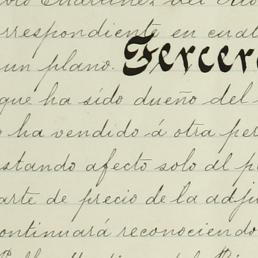 rrespondiente en cual
un plano. Tercero
que ha sido dueño del
o ha vendido á otra per
stando afecto solo al p
arte de precio de la adju
continuará reconociendo